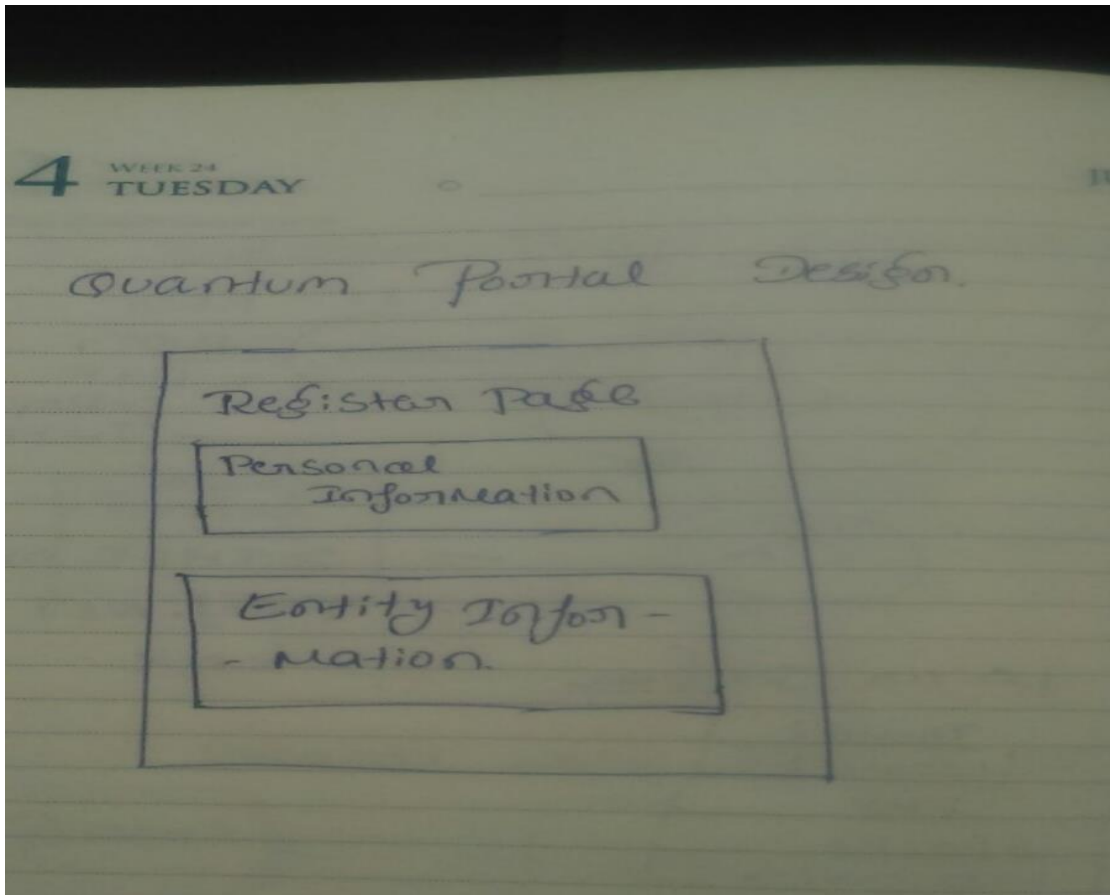 4 WEEK 24
TUESDAY
Quantum Portal Design.
Register Page
Personal
Information
Entity Infor-
- mation.